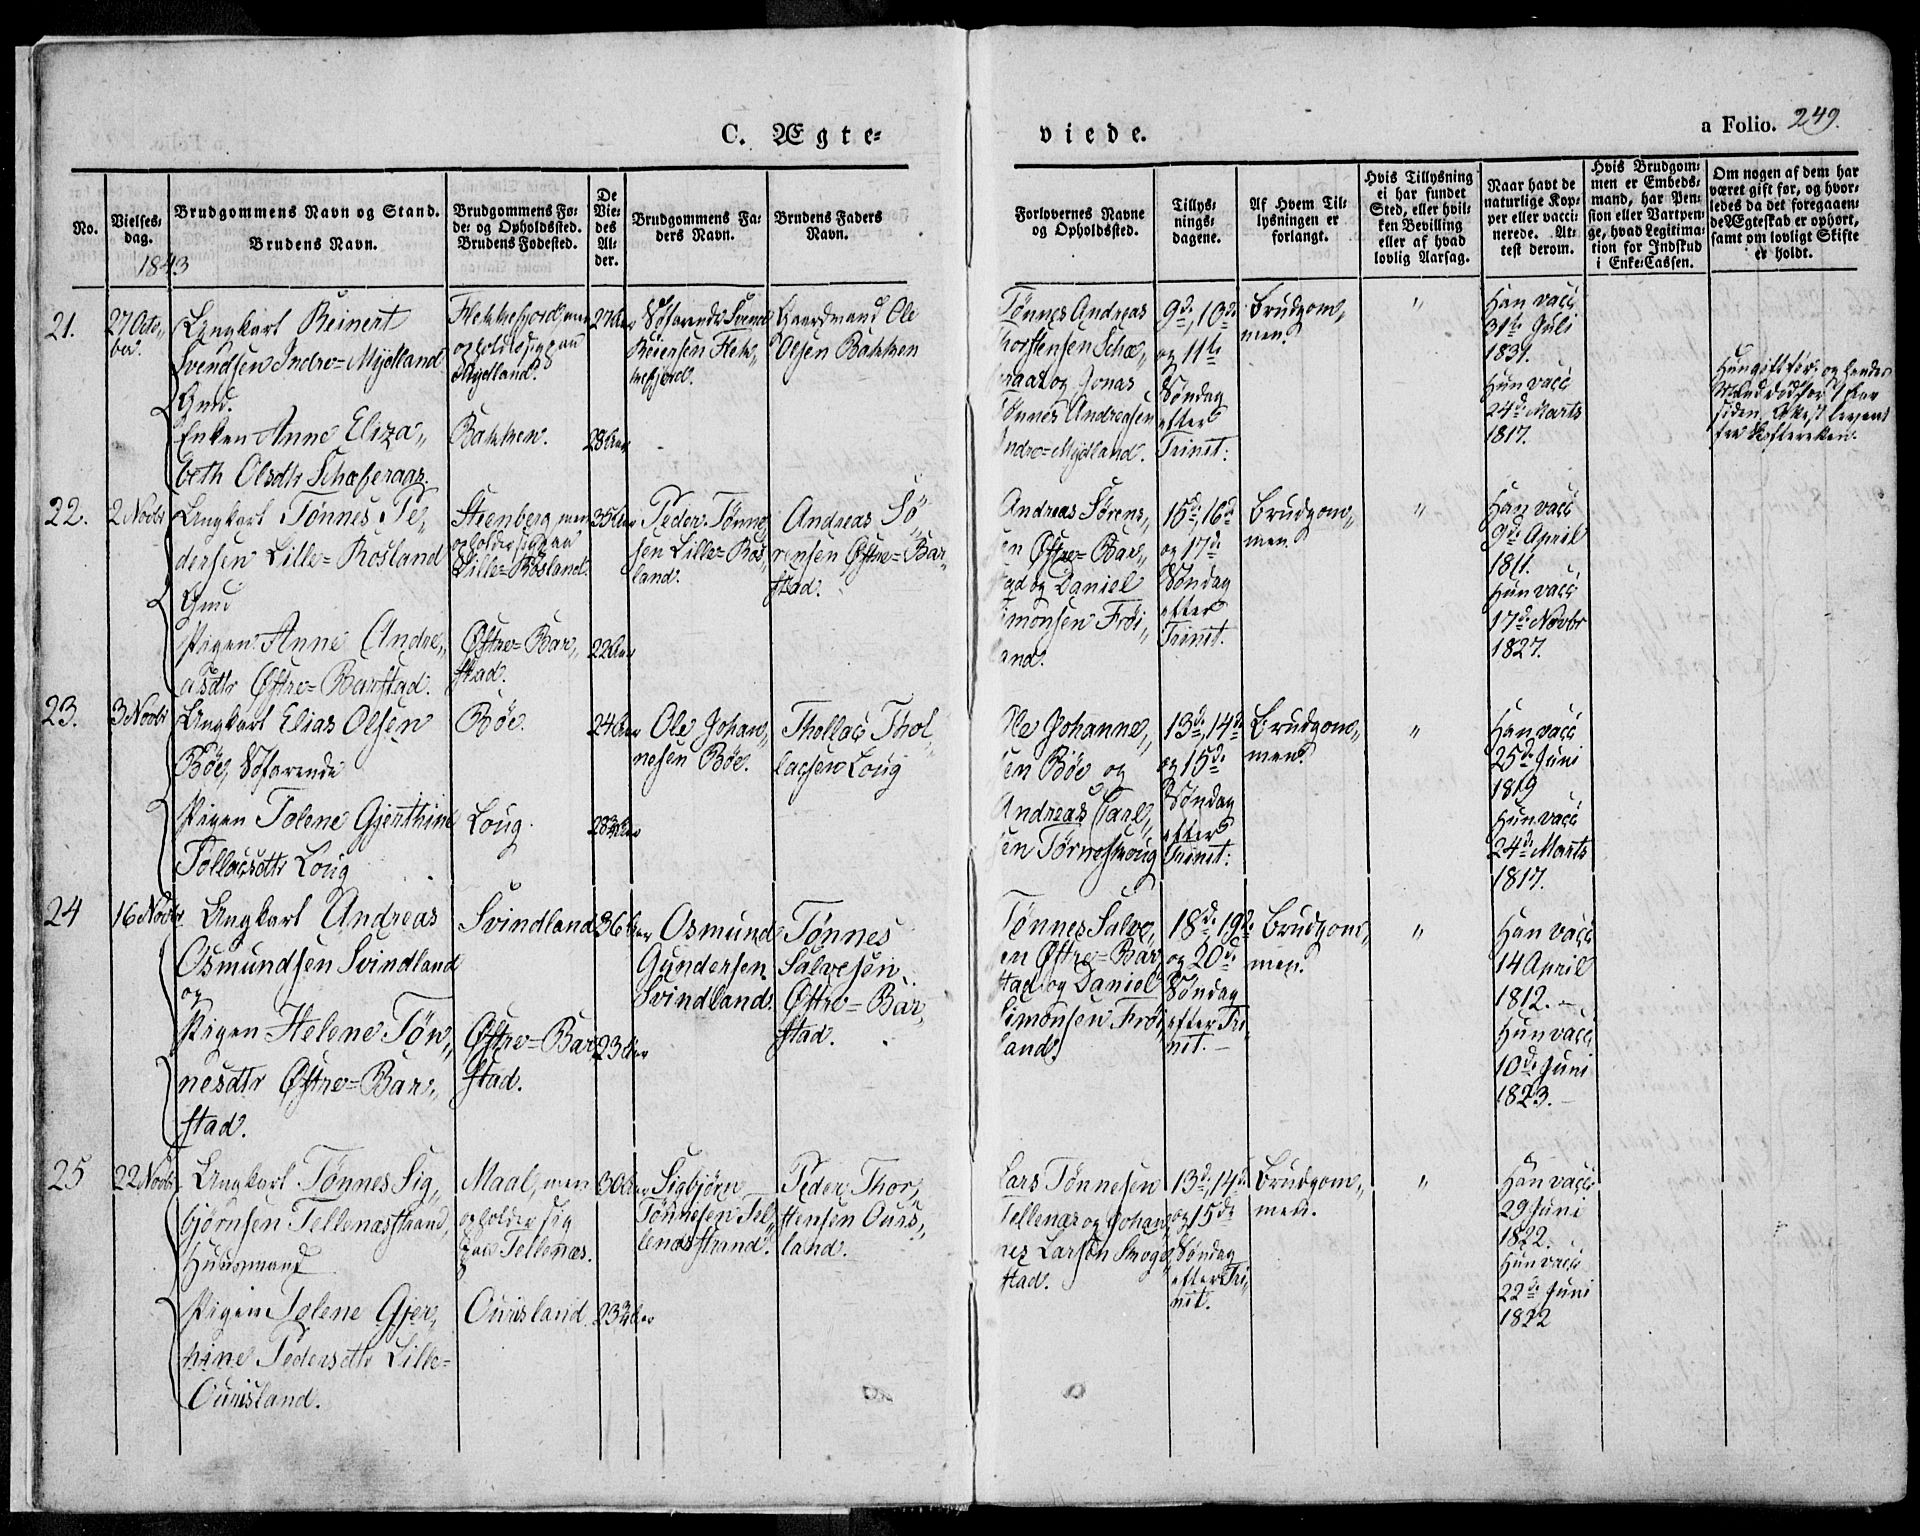 C. Ægte-
viede.
a Folio. 249.
No.
Vielses-
dag.
1843
Brudgommens Navn og Stand.
Brudens Navn.
Brudgommens Fø-
de- og Opholdssted.
Brudens Fødested.
De
Vie-
des
Al-
der.
Brudgommens Fa-
ders Navn.
Brudens Faders
Navn.
Forlovernes Navne
og Opholdssted.
Tillys-
nings-
dagene.
Af Hvem Til-
lysningen er
forlangt.
Hvis Tillysning
ei har fundet
Sted, eller hvil-
ken Bevilling
eller af hvad
lovlig Aarsag.
Naar havt de
naturlige Kop-
per eller vacci-
nerede. At-
test derom.
Hvis Brudgom-
men er Embeds-
mand, har Pen-
sion eller Vartpen-
ge, hvad Legitima-
tion for Indskud
i Enke-Cassen.
Om nogen af dem har
været gift før, og hvor-
ledes da det foregaaen-
de Ægteskab er ophørt,
samt om lovligt Skifte
er holdt.
21.
27 Octo-
ber.
Ungkarl Reinert
Svendsen Indre=Mydland
Gmd.
Enken Anne Eliza„
beth Olsdtr Schæferaas.
Flekkefjord, men
opholdt sig paa
Mydland.
Bakken.
27 Aar
28 Aar
Søfarende Svend
Reiersen Flek„
kefjord.
Gaardmand Ole
Olsen Bakken
Tønnes Andreas
Thorstensen Schæ„
feraas og Jonas
Tønnes Andreasen
Indre=Mydland.
9de, 10de
og 11te
Søndag
efter
Trinit:
Brudgom„
men.
„
Han vacc
31te Juli
1831.
Hun vacc
24de Marts
1817.
Hun gift før, og hendes
Mand død for 1 Aar
siden, Attest leveret
fra Skifteretten.
22.
2 Novbr
Ungkarl Tønnes Pe„
dersen Lille=Rosland
Gmd
Pigen Anne Andre„
asdtr Østre=Barstad.
Steenberg, men
opholder sig paa
Lille=Rosland.
Østre=Bar„
stad.
35 Aar
22 Aar
Peder Tønne„
sen Lille=Ros„
land.
Andreas Sø„
rensen Østre=Bar„
stad.
Andreas Sørens„
en Østre=Bar„
stad og Daniel
Simonsen Frøi„
land.
15de, 16de
og 17de
Søndag
efter
Trinit.
Brudgom„
men.
„
Han vacc
9de April
1811.
Hun vacc
17de Novbr
1827.
23.
3 Novbr
Ungkarl Elias Olsen
Bøe, Søfarende
Pigen Tolene Gjerthine
Tollacsdtr Loug
Bøe.
Loug.
24 Aar
28 3/4 Aar
Ole Johan„
nesen Bøe.
Thollac Thol„
lacsen Loug
Ole Johanne„
sen Bøe og
Andreas Carl„
sen Tørneskoug
13de, 14de
og 15de
Søndag
efter
Trinit:
Brudgom„
men.
„
Han vacc
25de Juni
1819
Hun vacc
24de Marts
1817.
24
16 Novbr.
Ungkarl Andreas
Osmundsen Svindland
og
Pigen Helene Tøn„
nesdtr Østre=Bar„
stad.
Svindland
Østre=Bar„
stad.
36 Aar
23 Aar
Osmund
Gundersen
Svindland.
Tønnes
Salvesen
Østre=Bar„
stad.
Tønnes Salve„
sen Østre=Bar„
stad og Daniel
Simonsen Frøi„
land.
18de, 19de
og 20de
Søndag
efter Tri„
nit.
Brudgom„
men.
„
Han vacc
14 April
1812.
Hun vacc
10de Juni
1823.
25
22 Novbr.
Ungkarl Tønnes Sig„
bjørnsen Tellenæsstrand,
Huusmand
Pigen Tolene Gjer„
thine Pedersdtr Lille=
Ouisland.
Maal, men
opholder sig
paa Tellenæs.
Ouisland.
30 Aar
23 3/4 Aar
Sigbjørn
Tønnesen Tel„
lenæsstrand.
Peder Thor„
stensen Ouis„
land.
Lars Tønnesen
Tellenæs og Johan„
nes Larsen Skoge„
stad.
13de, 14de
og 15de
Søndag
efter Tri„
nit.
Brudgom„
men.
„
Han vacc
29 Juni
1822.
Hun vacc
22de Juni
1822